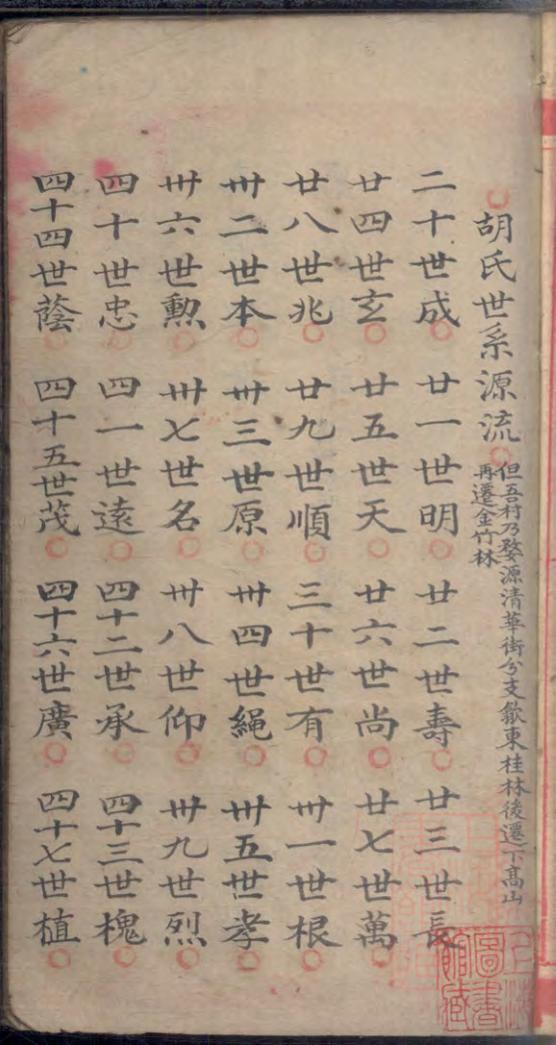 胡氏世系源流
但吾村乃婺源清華街分支歙東桂林後遷下高山
再遷金竹林
二十世成 廿一世明 廿二世壽 廿三世長
廿四世玄 廿五世天 廿六世尚 廿七世萬
廿八世兆 廿九世順 三十世有 卅一世根
卅二世本 卅三世原 卅四世繩 卅五世孝
卅六世勲 卅七世名 卅八世仰 卅九世烈
四十世忠 四一世遠 四十二世承 四十三世槐
四十四世蔭 四十五世茂 四十六世廣 四十七世植